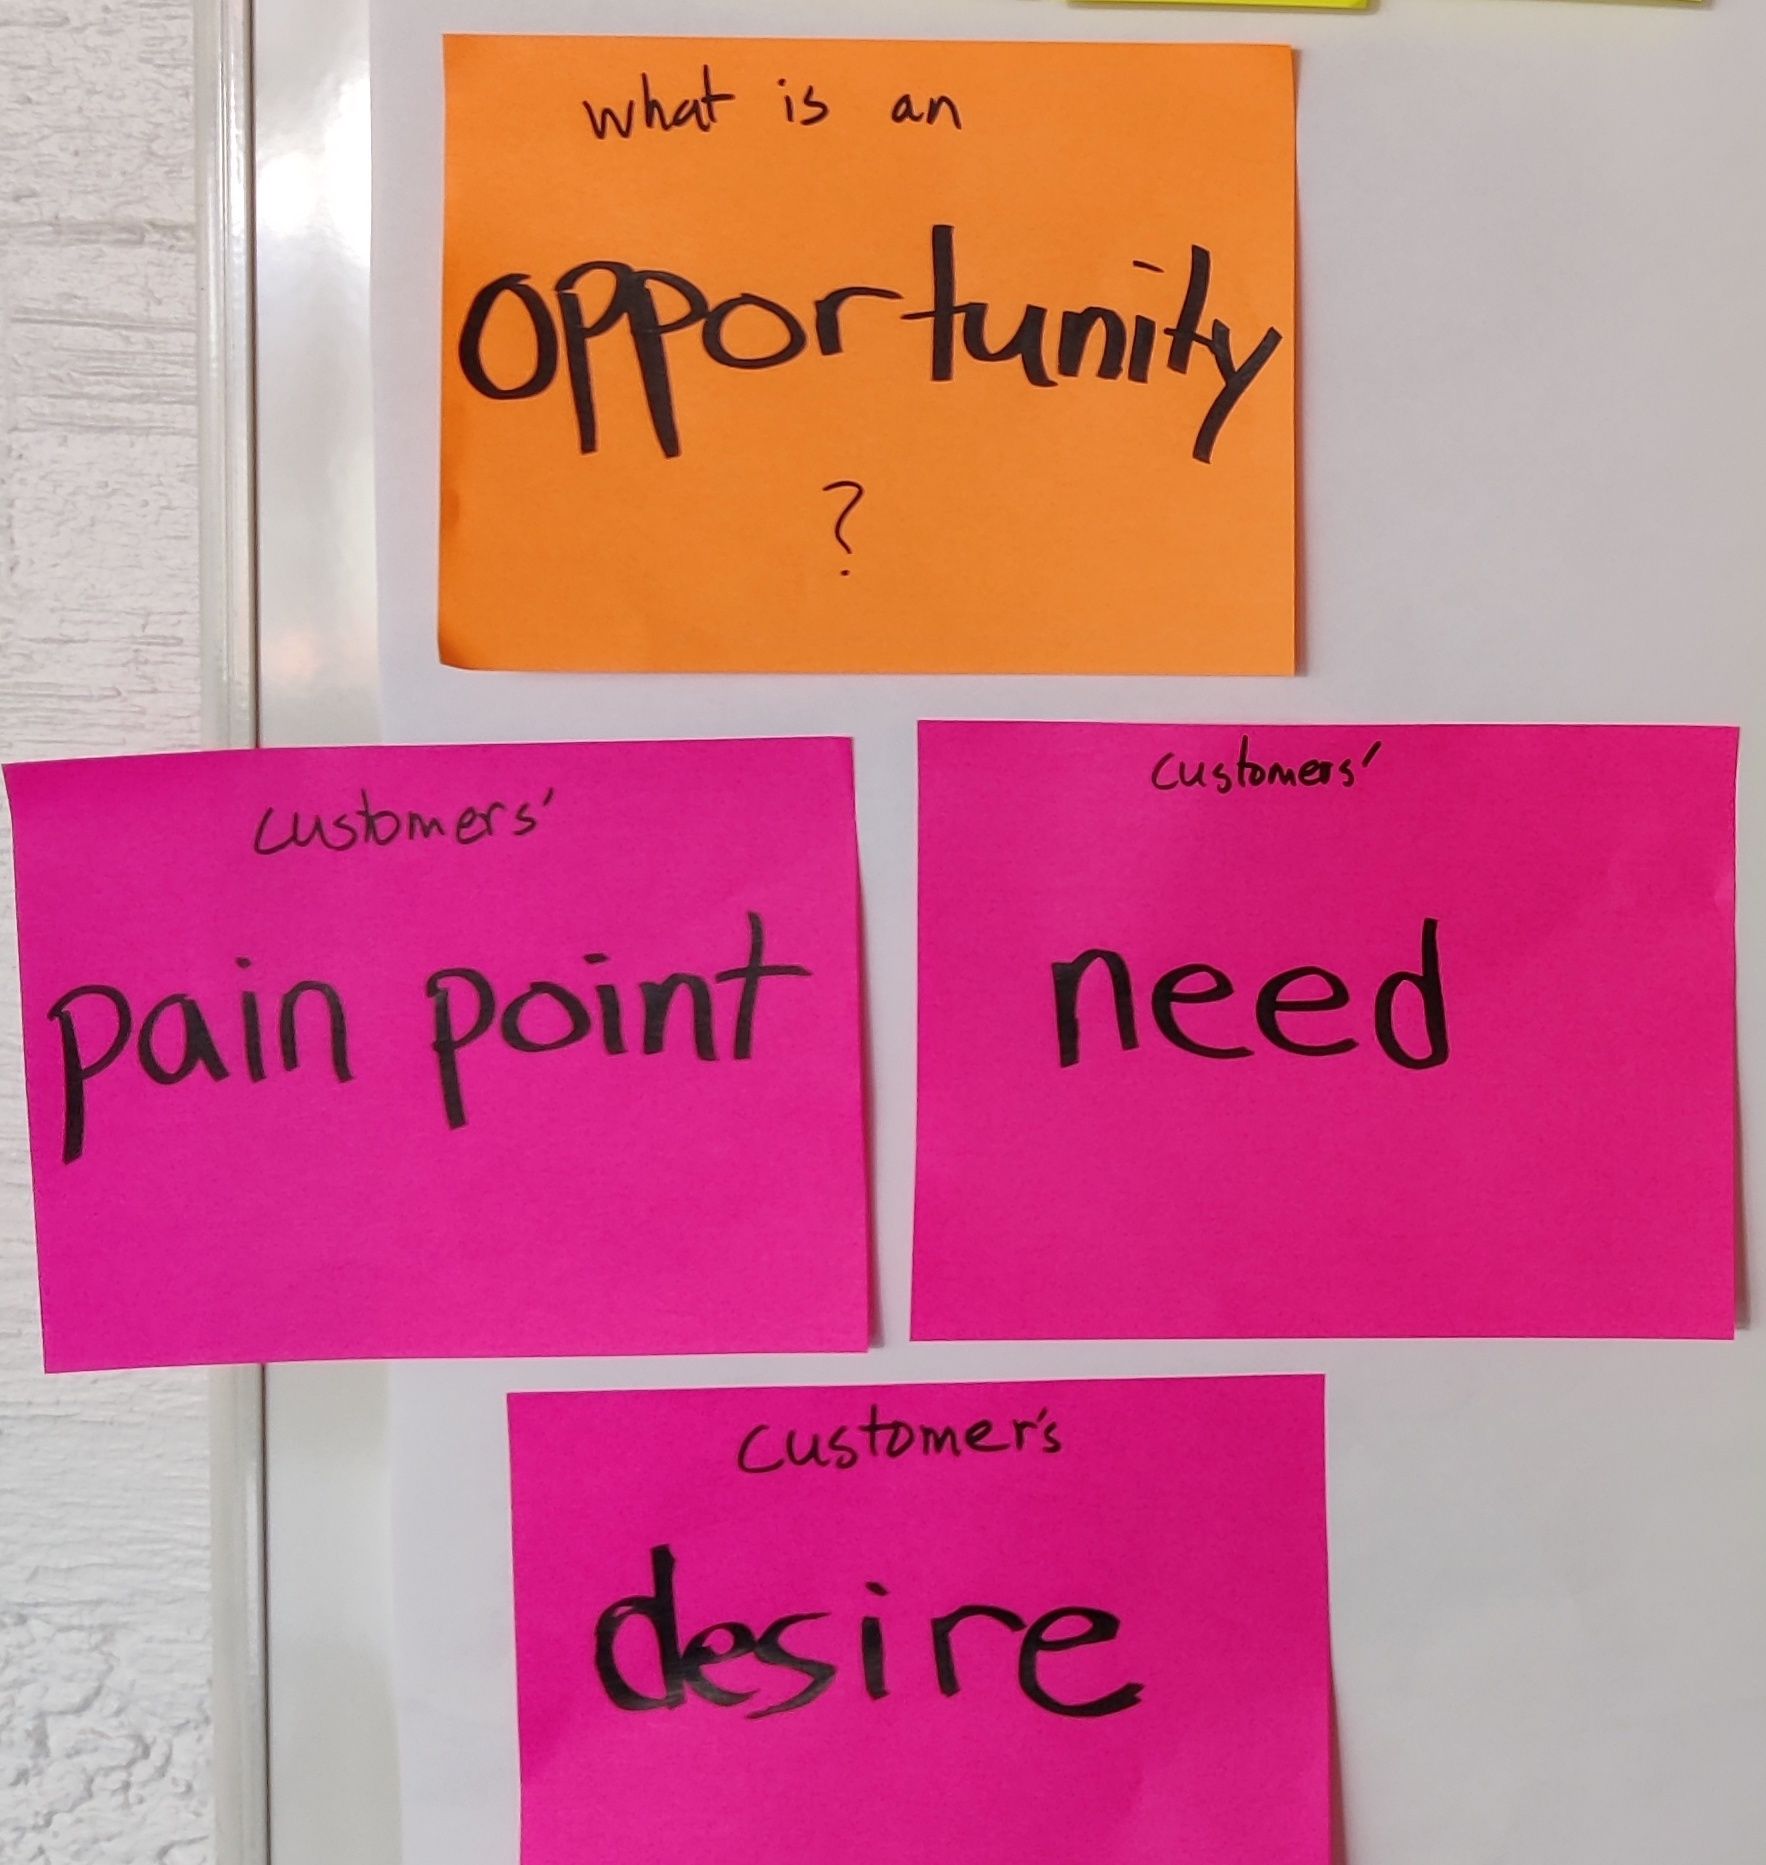 what is an
opportunity
?
customers'
pain point
customers'
need
customer's
desire